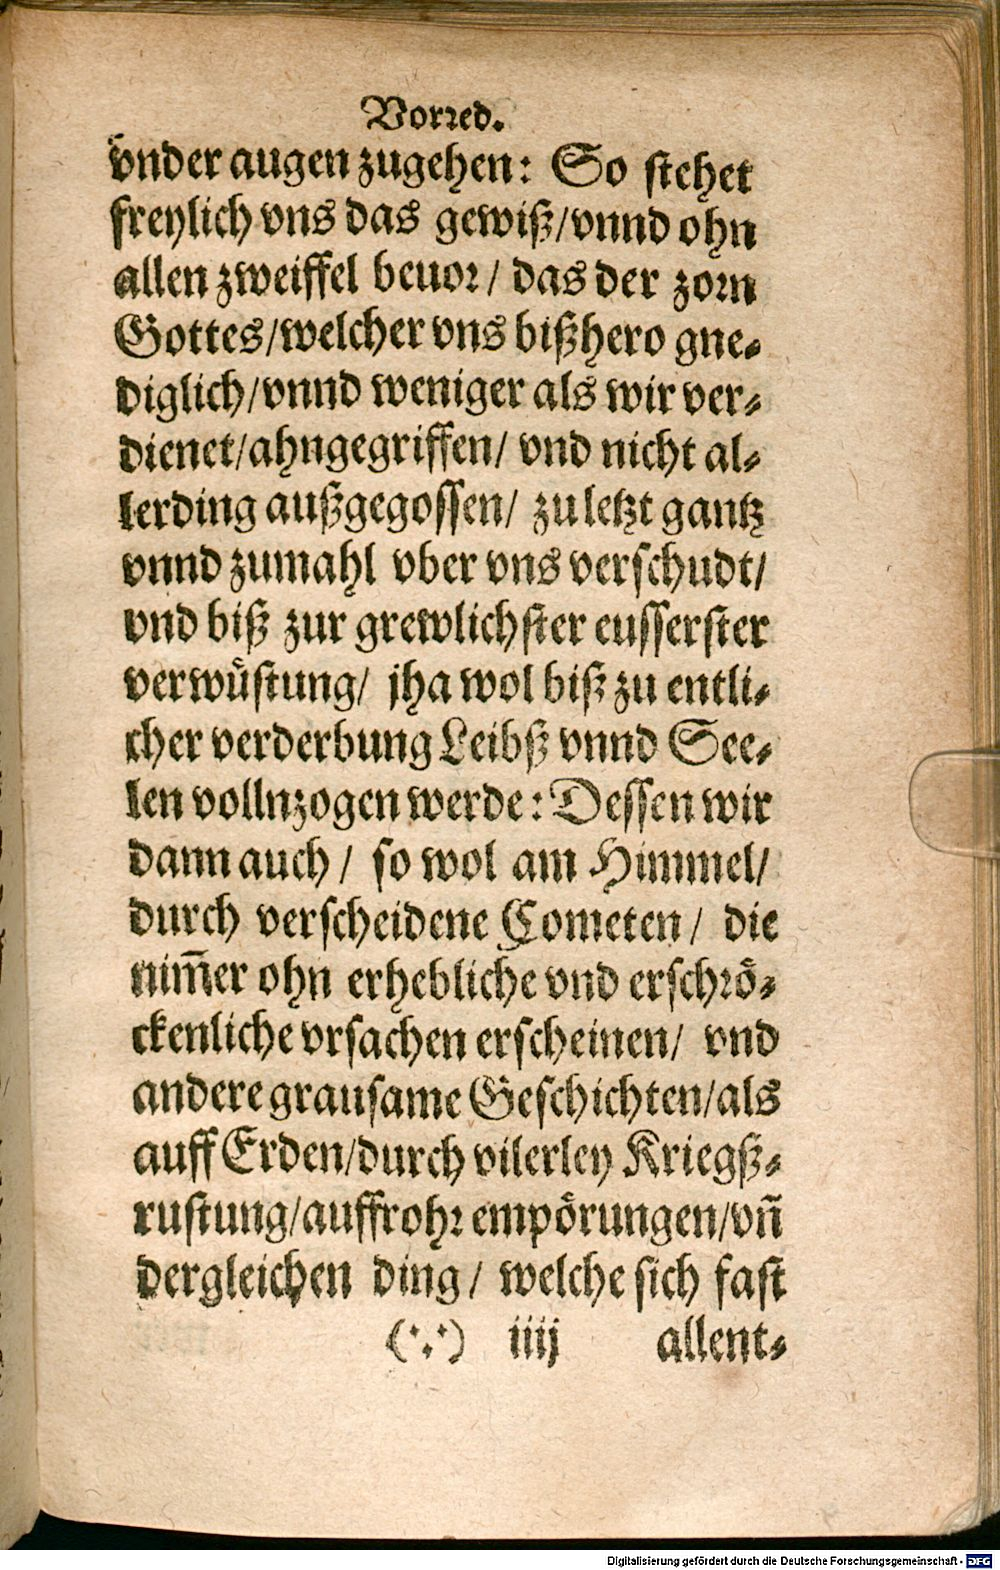 Vorred.
vnder augen zugehen: So stehet
freylich vns das gewiß/vnnd ohn
allen zweiffel beuor/ das der zorn
Gottes/welcher vns bißhero gne-
diglich/vnnd weniger als wir ver-
dienet/ahngegriffen/ vnd nicht al-
lerding außgegossen/ zu letzt gantz
vnnd zumahl vber vns verschudt/
vnd biß zur grewlichster eusserster
verwůstung/ jha wol biß zu entli-
cher verderbung Leibß vnnd See-
len vollnzogen werde: Dessen wir
dann auch/ so wol am Himmel/
durch verscheidene Cometen/ die
nim̃er ohn erhebliche vnd erschrö-
ckenliche vrsachen erscheinen/ vnd
andere grausame Geschichten/als
auff Erden/durch vilerley Kriegß-
rustung/auffrohr empörungen/vñ
dergleichen ding/ welche sich fast
(∵) iiij allent-
Digitalisierung gefördert durch die Deutsche Forschungsgemeinschaft - DFG